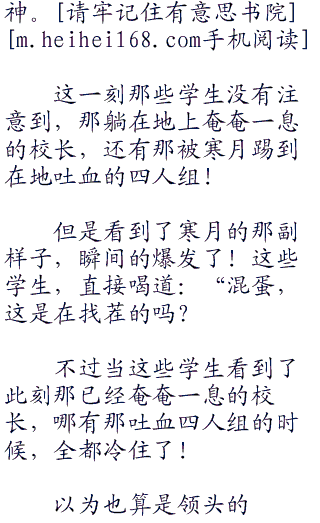 神。[请牢记住有意思书院]
[m.heihei168.com手机阅读]
这一刻那些学生没有注
意到，那躺在地上奄奄一息
的校长，还有那被寒月踢到
在地吐血的四人组！
但是看到了寒月的那副
样子，瞬间的爆发了！这些
学生，直接喝道：“混蛋，
这是在找茬的吗？
不过当这些学生看到了
此刻那已经奄奄一息的校
长，哪有那吐血四人组的时
候，全都冷住了！
以为也算是领头的